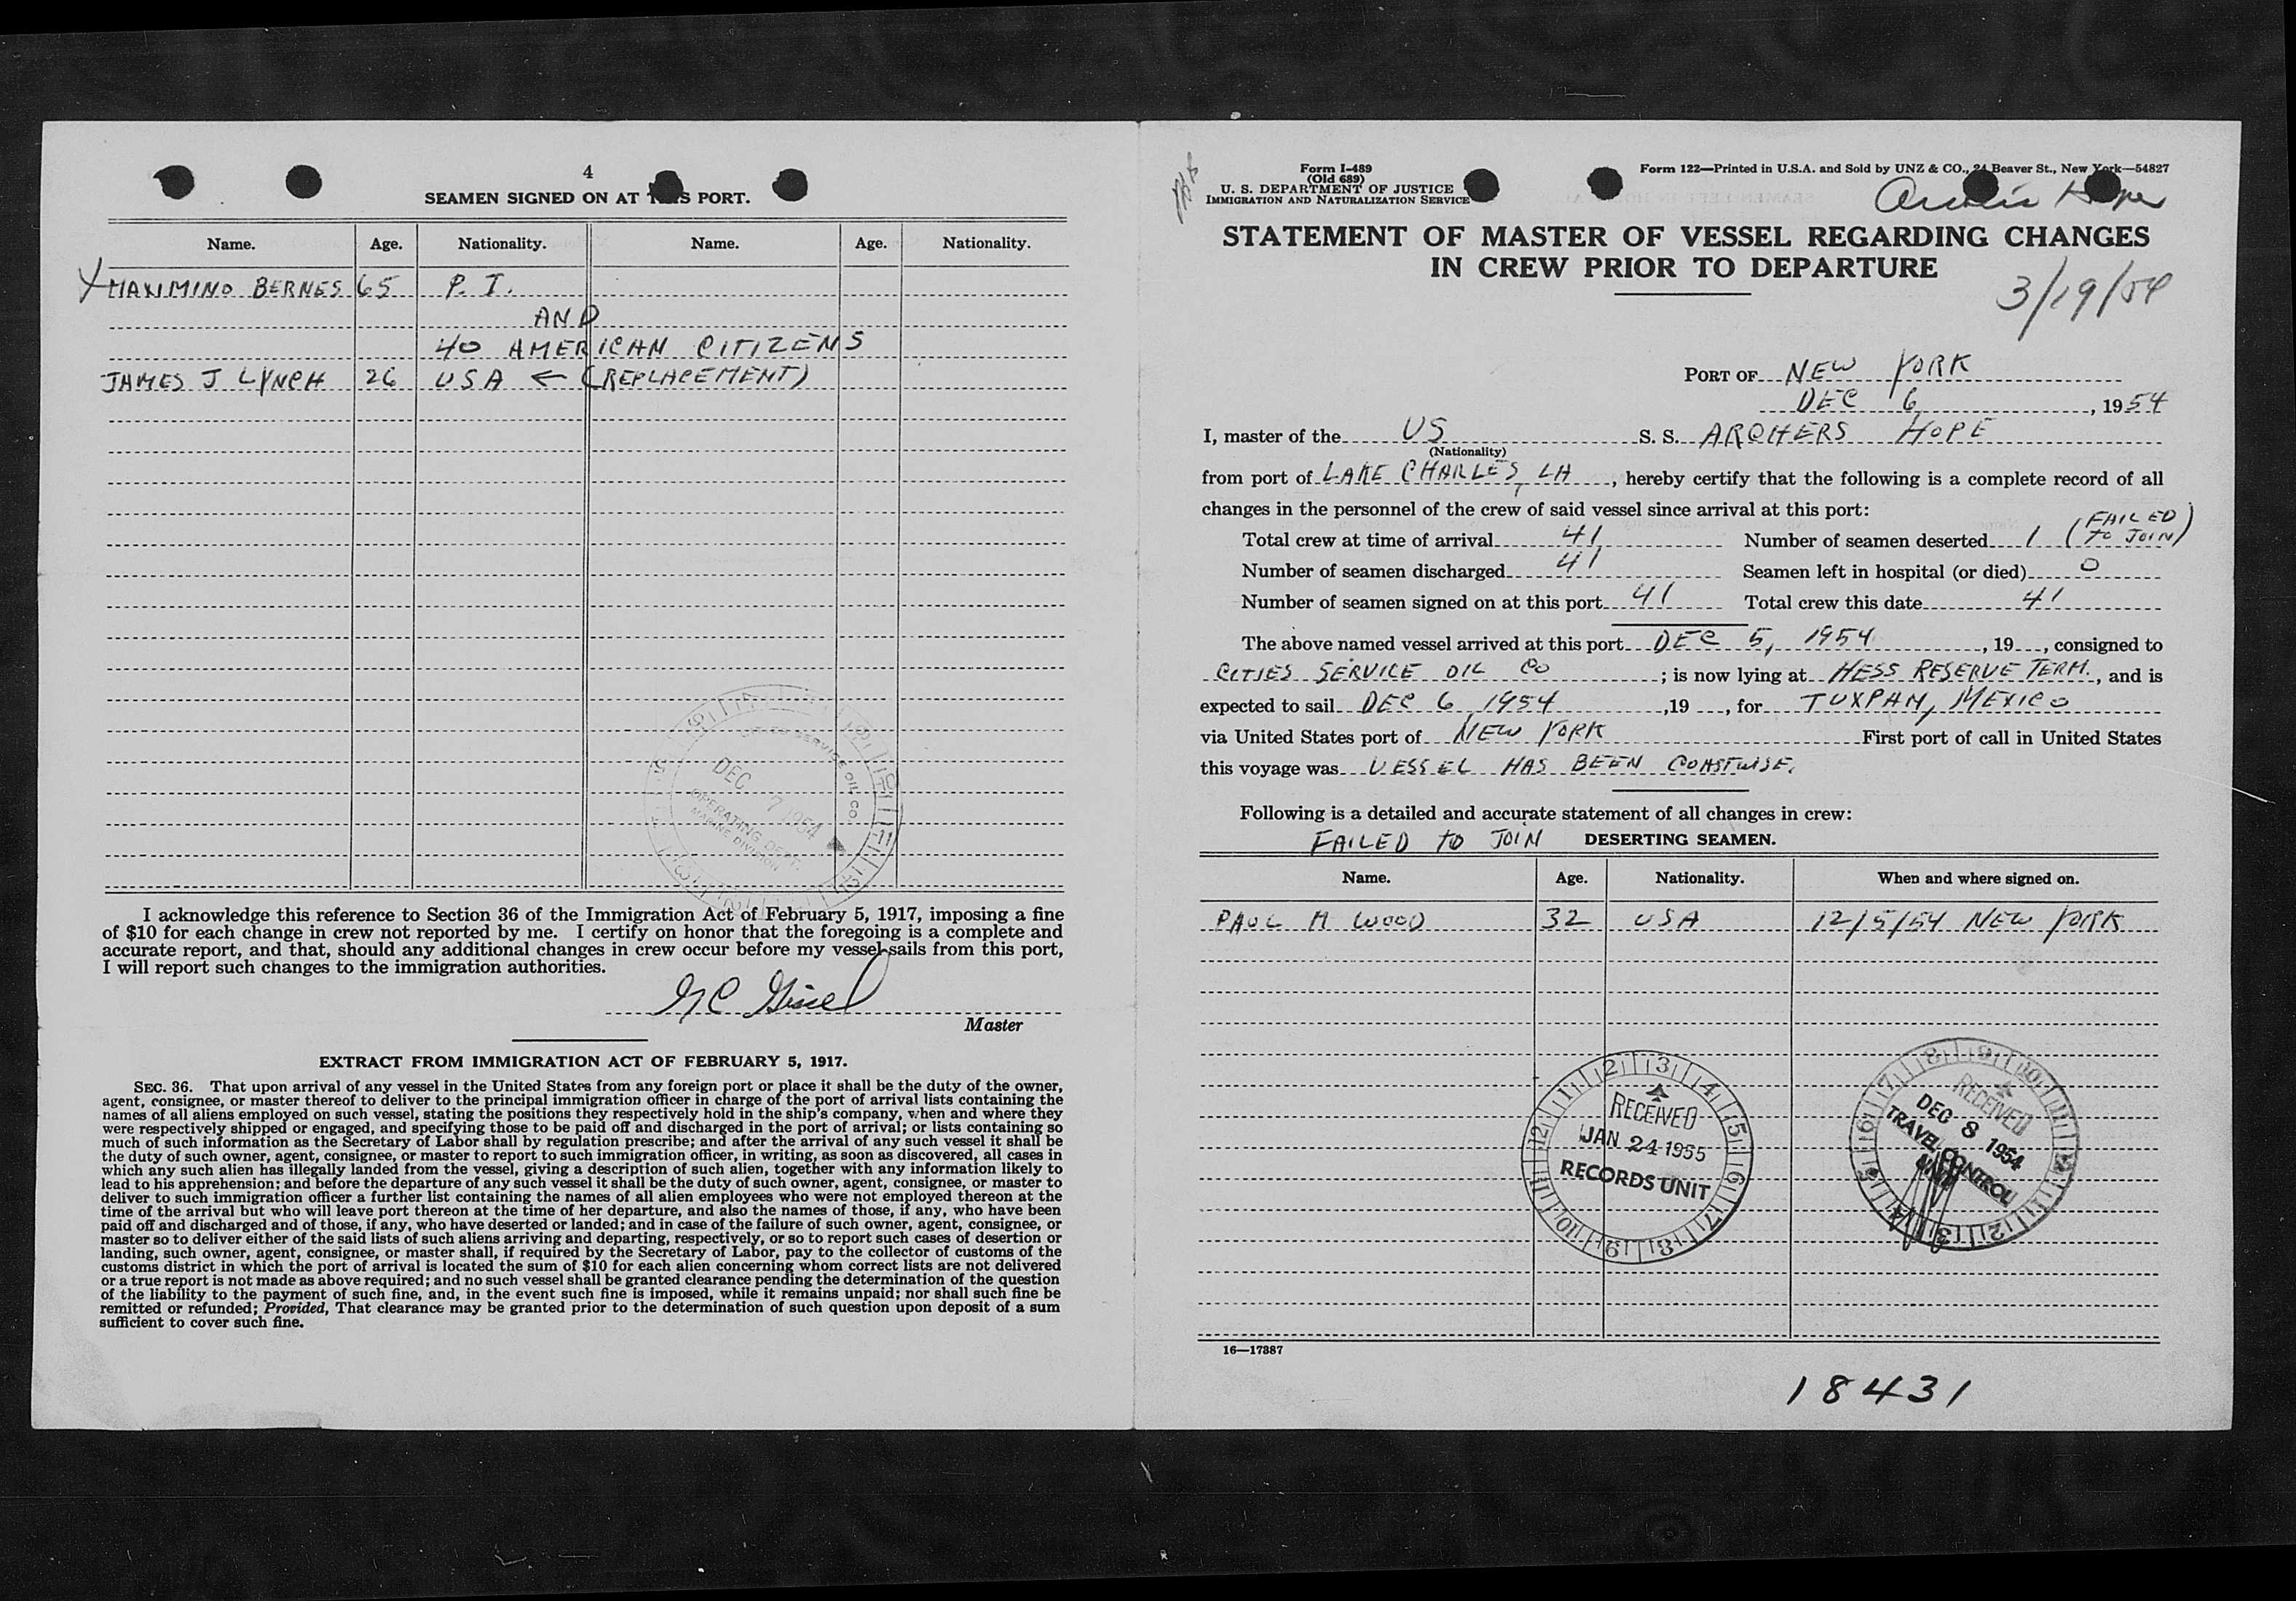 4
SEAMEN SIGNED ON AT THIS PORT.
Name. Age. Nationality. Name. Age. Nationality.
MAXIMINO BERNES 65 P. I.
AND
40 AMERICAN CITIZENS
JAMES J LYNCH 26 USA ← (REPLACEMENT)
CITIES SERVICE OIL CO
DEC 7 1954
OPERATING DEPT.
MARINE DIVISION
I acknowledge this reference to Section 36 of the Immigration Act of February 5, 1917, imposing a fine
of $10 for each change in crew not reported by me. I certify on honor that the foregoing is a complete and
accurate report, and that, should any additional changes in crew occur before my vessel sails from this port,
I will report such changes to the immigration authorities.
Master
EXTRACT FROM IMMIGRATION ACT OF FEBRUARY 5, 1917.
SEC. 36. That upon arrival of any vessel in the United States from any foreign port or place it shall be the duty of the owner,
agent, consignee, or master thereof to deliver to the principal immigration officer in charge of the port of arrival lists containing the
names of all aliens employed on such vessel, stating the positions they respectively hold in the ship's company, when and where they
were respectively shipped or engaged, and specifying those to be paid off and discharged in the port of arrival; or lists containing so
much of such information as the Secretary of Labor shall by regulation prescribe; and after the arrival of any such vessel it shall be
the duty of such owner, agent, consignee, or master to report to such immigration officer, in writing, as soon as discovered, all cases in
which any such alien has illegally landed from the vessel, giving a description of such alien, together with any information likely to
lead to his apprehension; and before the departure of any such vessel it shall be the duty of such owner, agent, consignee, or master to
deliver to such immigration officer a further list containing the names of all alien employees who were not employed thereon at the
time of the arrival but who will leave port thereon at the time of her departure, and also the names of those, if any, who have been
paid off and discharged and of those, if any, who have deserted or landed; and in case of the failure of such owner, agent, consignee, or
master so to deliver either of the said lists of such aliens arriving and departing, respectively, or so to report such cases of desertion or
landing, such owner, agent, consignee, or master shall, if required by the Secretary of Labor, pay to the collector of customs of the
customs district in which the port of arrival is located the sum of $10 for each alien concerning whom correct lists are not delivered
or a true report is not made as above required; and no such vessel shall be granted clearance pending the determination of the question
of the liability to the payment of such fine, and, in the event such fine is imposed, while it remains unpaid; nor shall such fine be
remitted or refunded; Provided, That clearance may be granted prior to the determination of such question upon deposit of a sum
sufficient to cover such fine.
Form I-489
(Old 689)
U. S. DEPARTMENT OF JUSTICE
IMMIGRATION AND NATURALIZATION SERVICE
Form 122—Printed in U.S.A. and Sold by UNZ & CO., 24 Beaver St., New York—54827
STATEMENT OF MASTER OF VESSEL REGARDING CHANGES
IN CREW PRIOR TO DEPARTURE
3/19/54
PORT OF NEW YORK
DEC 6, 1954
I, master of the US S. S. ARCHERS HOPE
(Nationality)
from port of LAKE CHARLES, LA, hereby certify that the following is a complete record of all
changes in the personnel of the crew of said vessel since arrival at this port:
Total crew at time of arrival 41 Number of seamen deserted 1 (FAILED TO JOIN)
Number of seamen discharged 41 Seamen left in hospital (or died) 0
Number of seamen signed on at this port 41 Total crew this date 41
The above named vessel arrived at this port DEC 5, 1954, 19 , consigned to
CITIES SERVICE OIL CO; is now lying at HESS RESERVE TERM., and is
expected to sail DEC 6, 1954, 19 , for TUXPAN, MEXICO
via United States port of NEW YORK First port of call in United States
this voyage was VESSEL HAS BEEN COASTWISE.
Following is a detailed and accurate statement of all changes in crew:
FAILED TO JOIN DESERTING SEAMEN.
Name. Age. Nationality. When and where signed on.
PAUL H WOOD 32 USA 12/5/54 NEW YORK
RECEIVED
JAN 24 1955
RECORDS UNIT
RECEIVED
DEC 8 1954
TRAVEL CONTROL
UNIT
16—17887
18431